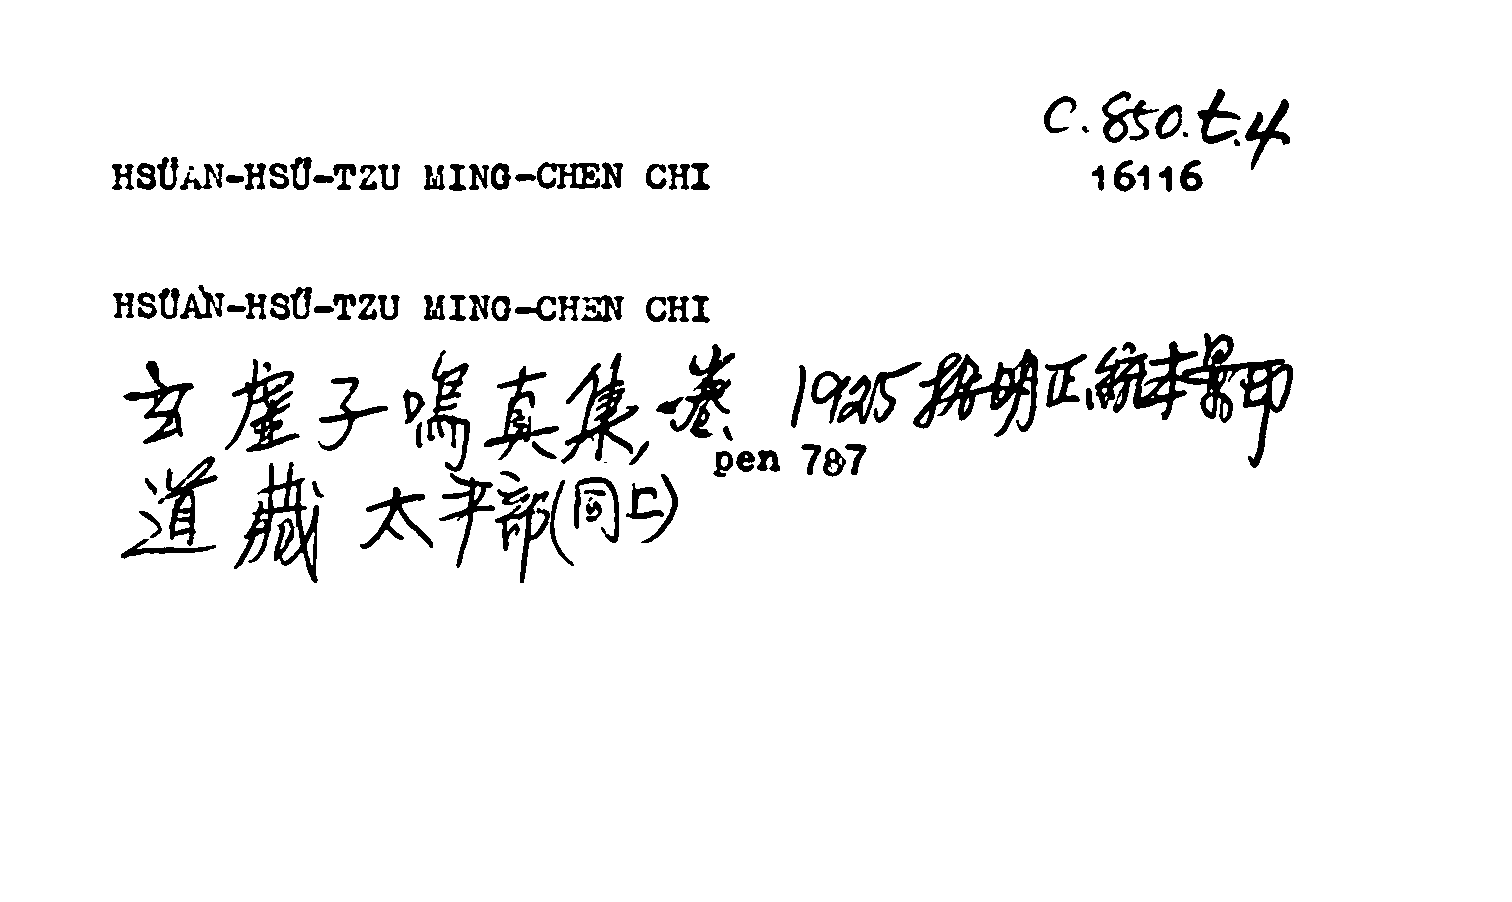 C.850.t.4
HSÜAN-HSÜ-TZU MING-CHEN CHI
16116
HSÜAN-HSÜ-TZU MING-CHEN CHI
玄虛子鳴真集,一卷、 1925 據明正統本景印
pen 787
道藏 太平部(同上)